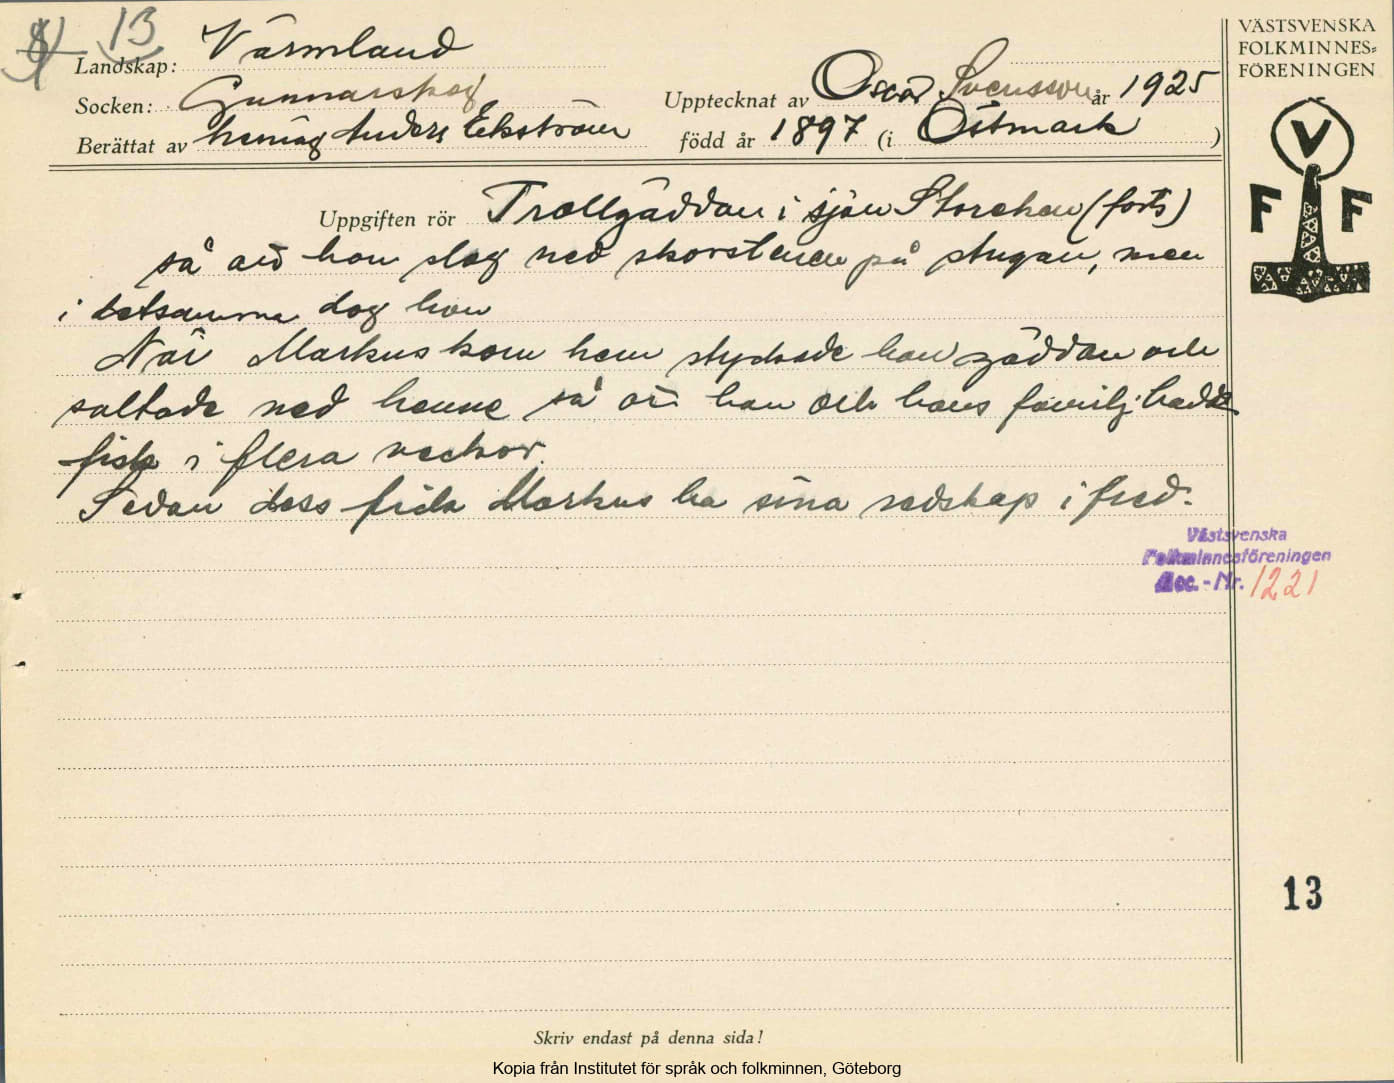 13
VÄSTSVENSKA
FOLKMINNES=
FÖRENINGEN
Landskap: Värmland
Socken: Gunnarskog
Upptecknat av Oscar Svensson år 1925
Berättat av Anders Ekström född år 1897 (i Östmark)
V
F F
Uppgiften rör Trollgäddan i sjön (forts)
så att hon slog ned skorstenen på stugan, men
i detsamma dog hon
När Markus kom hem styckade han gäddan och
saltade ned henne så att han och hans familj hadde
fisk i flera veckor.
Sedan dess fick Markus ha sina redskap i fred.
Västsvenska
Folkminnesföreningen
Acc.-Nr. 1221
13
Skriv endast på denna sida!
Kopia från Institutet för språk och folkminnen, Göteborg